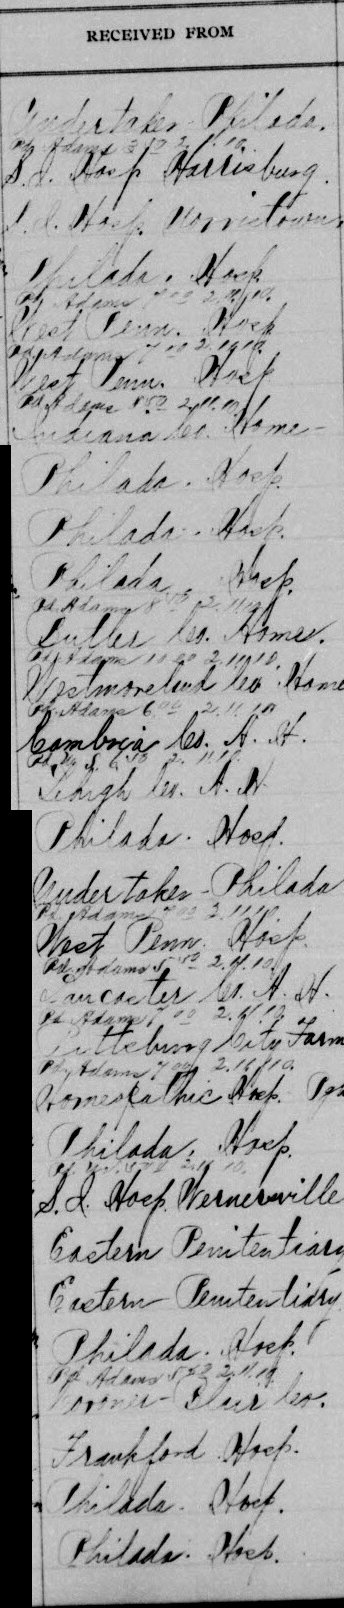 RECEIVED FROM
Undertaker - Philada.
Pd Adams 2.11.10.
S. I. Hosp Harrisburg.
S. I. Hosp. Norristown
Philada. Hosp
Pd Adams 7 00 2.11.10.
West Penn. Hosp
Pd Adams 7 00 2.11.10.
West Penn. Hosp
Pd Adams 8 50 2.11.10.
Indiana Co. Home -
Philada. Hosp.
Philada. Hosp.
Philada. Hosp.
Pd Adams 8 2.11.10
Butler Co. Home.
Pd Adams 10 00 2.11.10.
Westmoreland Co Home
Pd Adams 6 00 2.11.10
Cambria Co. A. H.
Lehigh Co. A. H
Philada. Hosp.
Undertaker - Philada
Pd. Adams 7 00 2.11.10.
West Penn. Hosp.
Pd Adams 8 50 2.11.10
Lancaster Co. A. H.
Pd Adams 7 00 2.11.10.
Pittsburg City Farm
Pd Adams 7 00 2.11.10.
Homeopathic Hosp.
Philada. Hosp.
S. I. Hosp. Wernersville
Eastern Penitentiary
Eastern Penitentiary
Philada. Hosp.
Pd Adams 2.11.10
Coroner - Blair Co.
Frankford Hosp.
Philada. Hosp.
Philada. Hosp.